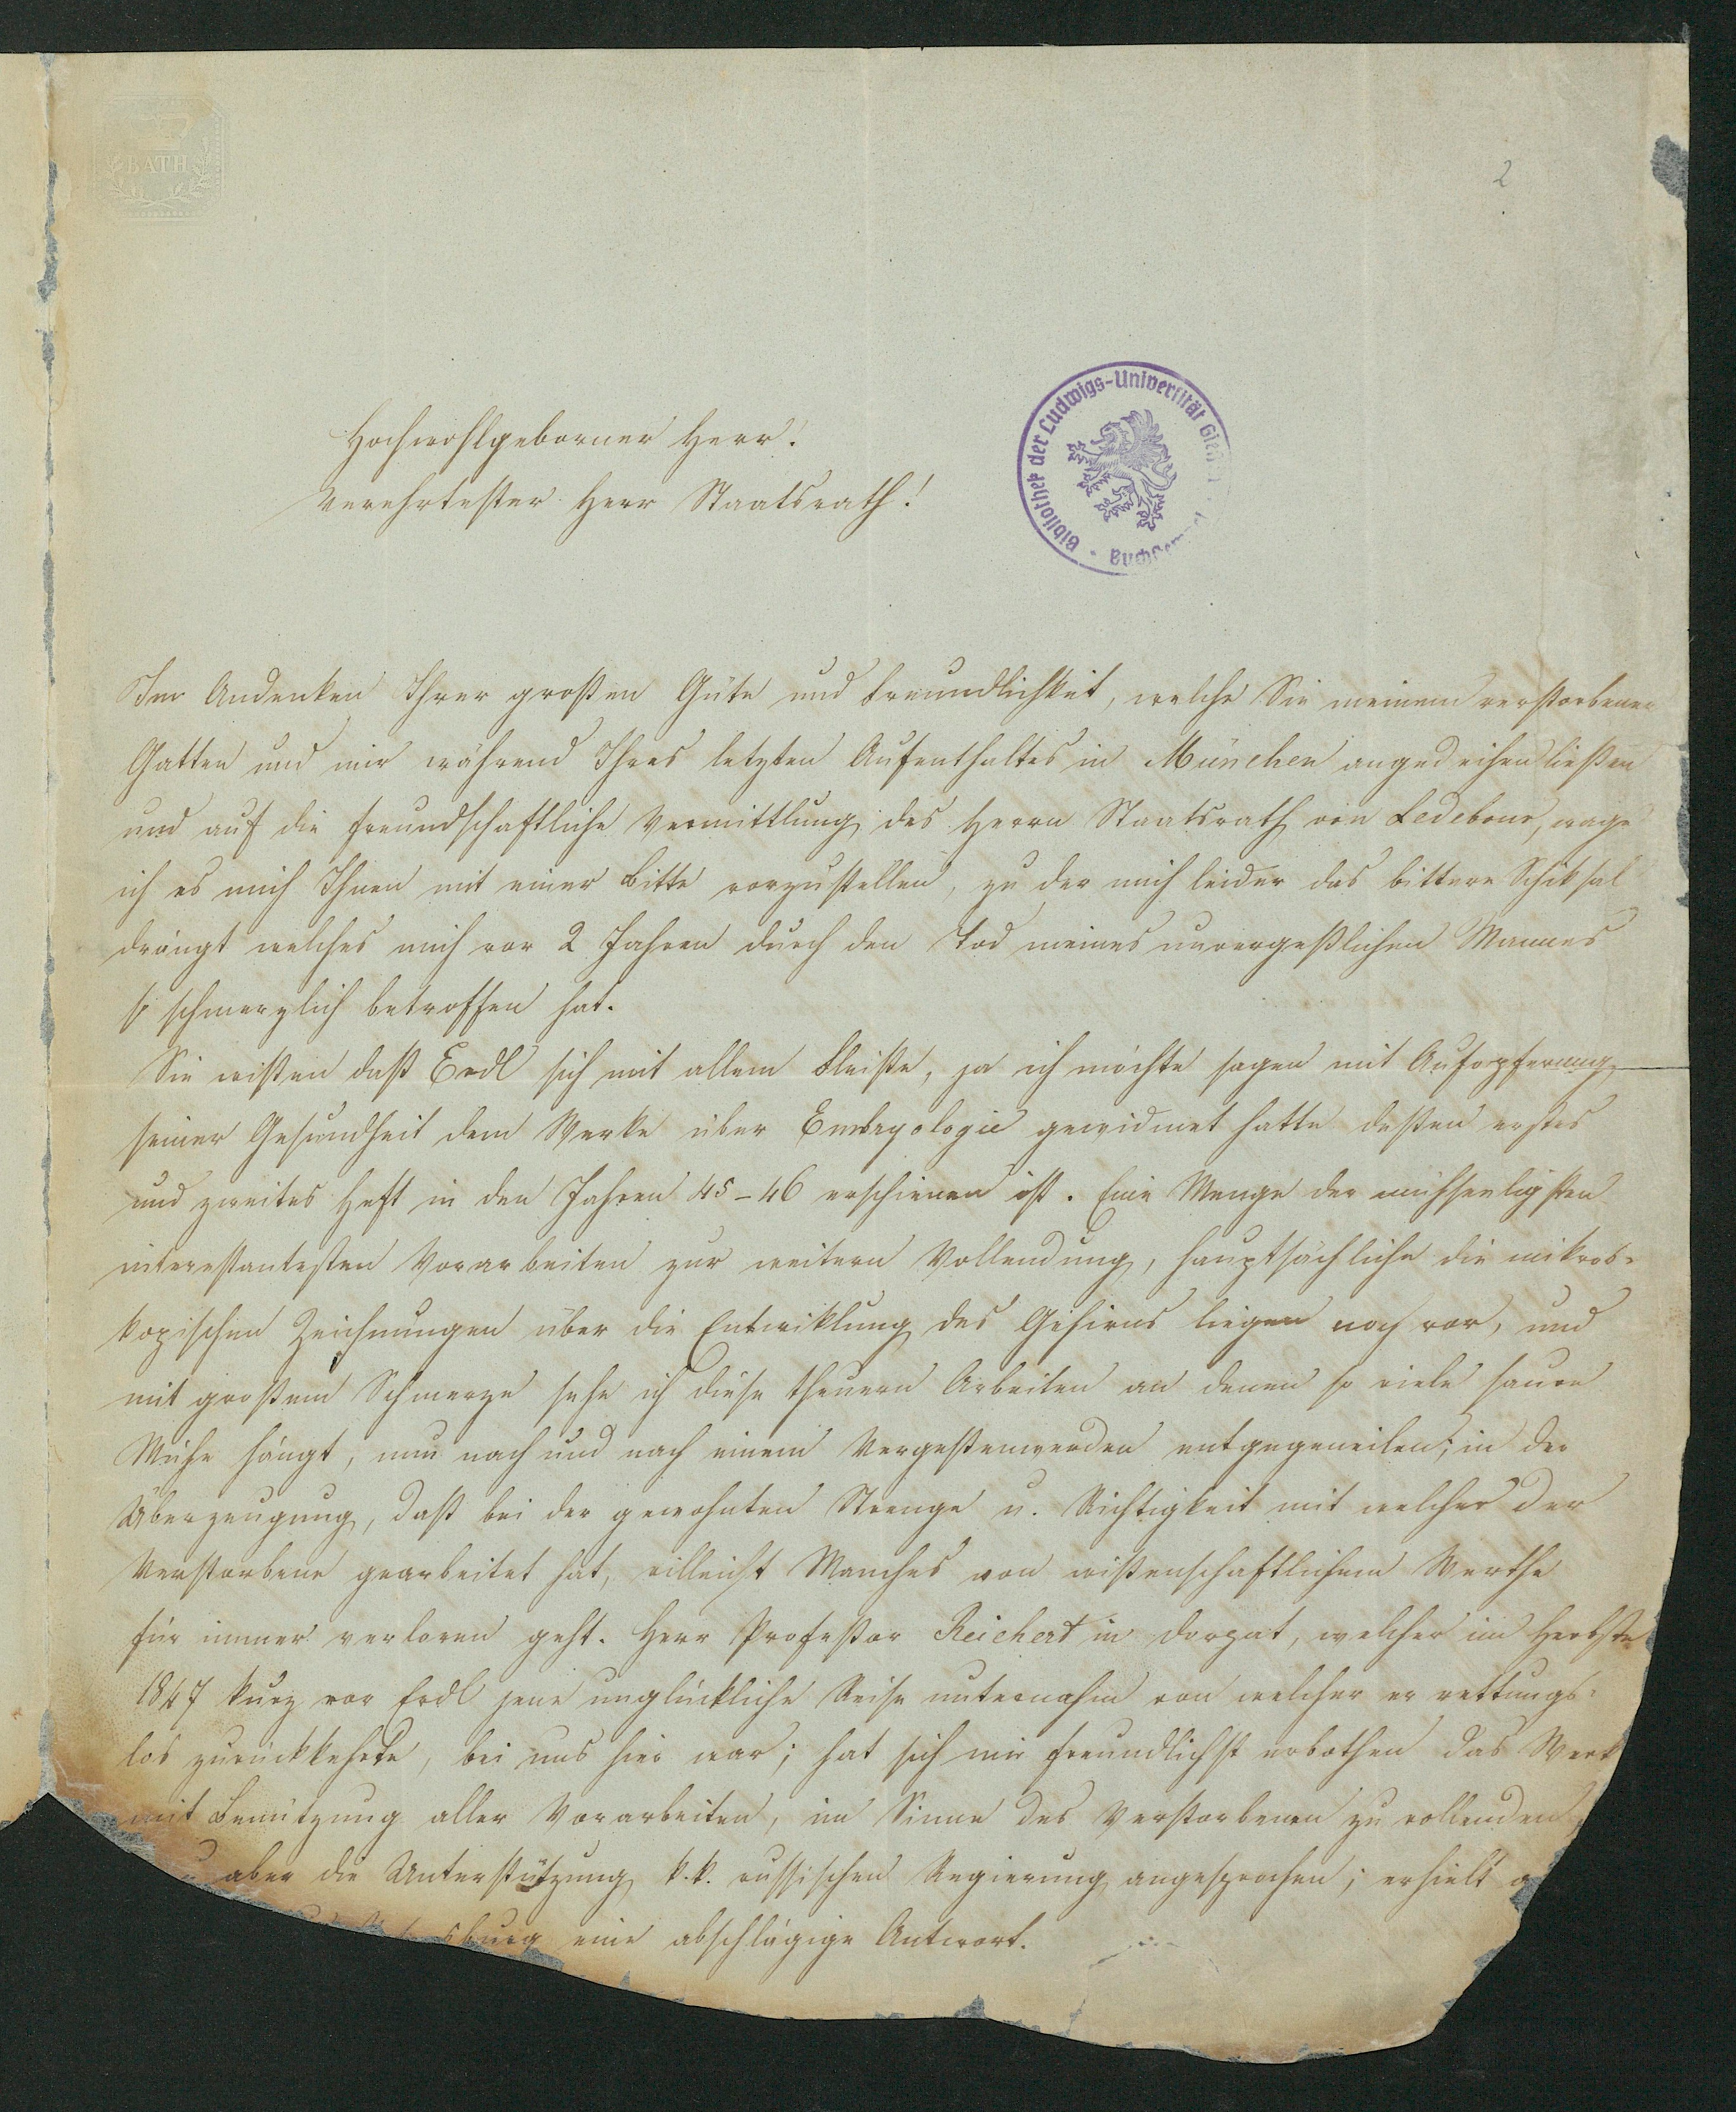 BATH
2
Bibliothek der Ludwigs-Universität
Hochwohlgeborner Herr!
Verehrtester Herr Staatsrath!
Im Andenken Ihrer großen Güte und Freundlichkeit, welche Sie meinem verstorbenen
Gatten und mir während Ihres letzten Aufenthaltes in München angedeihen ließen
und auf die freundschaftliche Vermittlung des Herrn Staatsrath von Ledebour, wage
ich es mich Ihnen mit einer Bitte vorzustellen, zu der mich leider das bittere Schiksal
drängt welches mich vor 2 Jahren durch den Tod meines unvergeßlichen Mannes
so schmerzlich betroffen hat.
Sie wißen daß Erdl sich mit allem Fleiße, ja ich möchte sagen mit Aufopferung
seiner Gesundheit dem Werke über Embryologie gewidmet hatte deßen erstes
und zweites Heft in den Jahren 45-46 erschienen ist. Eine Menge der mühseeligsten
interessantesten Vorarbeiten zur weitern Vollendung, hauptsächliche die mikros-
kopischen Zeichnungen über die Entwiklung des Gehirns liegen noch vor, und
mit großem Schmerze sehe ich diese theuern Arbeiten an denen so viele saure
Mühe hängt, nun nach und nach einem Vergeßenwerden entgegeneilen; in der
Überzeugung, daß bei der gewohnten Strenge u. Richtigkeit mit welcher der
Verstorbene gearbeitet hat, villeicht Manches von wißenschaftlichem Werthe
für immer verloren geht. Herr Profeßor Reichert in Dorpat, welcher im Herbste
1847 kurz vor Erdl jene unglückliche Reise unternahm von welcher er rettungs-
los zurückkehrte, bei uns hier war; hat sich mir freundlichst erbothen das Werk
mit Benützung aller Vorarbeiten, im Sinne des Verstorbenen zu vollenden
aber die Unterstützung k.k. russischen Regierung angesprochen; erhielt
eine abschlägige Antwort.